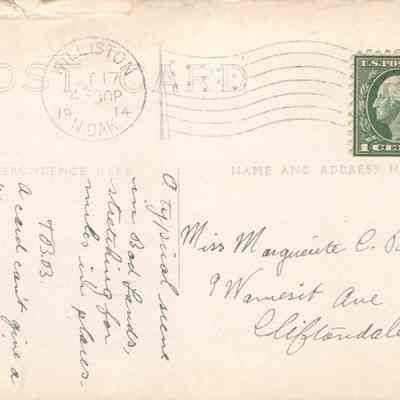 POST CARD
WILLISTON
17
4-30P
19 14
N.DAK.
U.S. POS
1 CE
NDENCE HERE
NAME AND ADDRESS H
A typical scene
in Bad Lands,
stretching for
miles in places.
T.B.B.
A card can't give a
Miss Marguerite C.
9 Wamesit Ave
Cliftondale